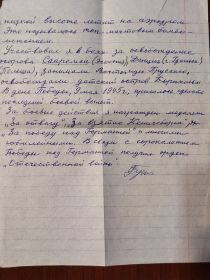 низкой высоте летит на аэродром.
Это называлось топ-мачтовым бомбо-
метанием.
Участвовал я в боях за освобождение
острова Сааремаа (Эстония), Данциг (г. Гданьск
Польша), занимали Восточную Пруссию,
освобождали датский остров Борнхольм.
В день Победы, 9 мая 1945 г., пришлось сделать
последний боевой вылет.
За боевые действия я награжден медалями
"За отвагу", "За взятие Кенигсберга" и
"За победу над Германией" и многими
юбилейными. В связи с сорокалетием
Победы над Германией получил орден
"Отечественной войны".